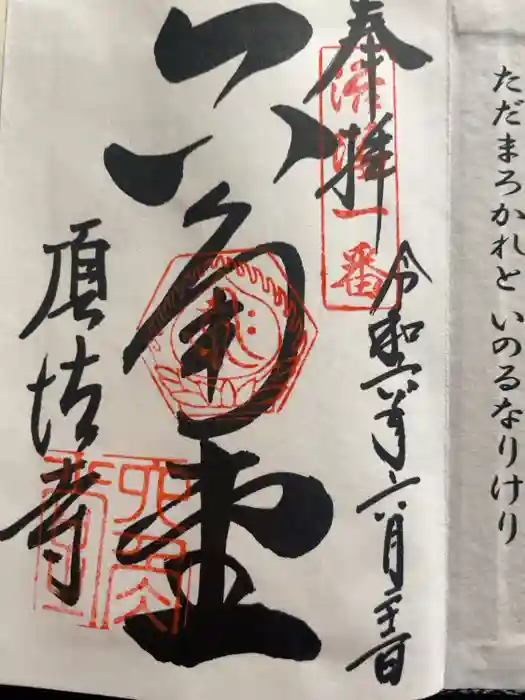 ただまろかれと いのるなりけり
奉拝
洛陽一番
令和六年六月
六角堂
頂法寺